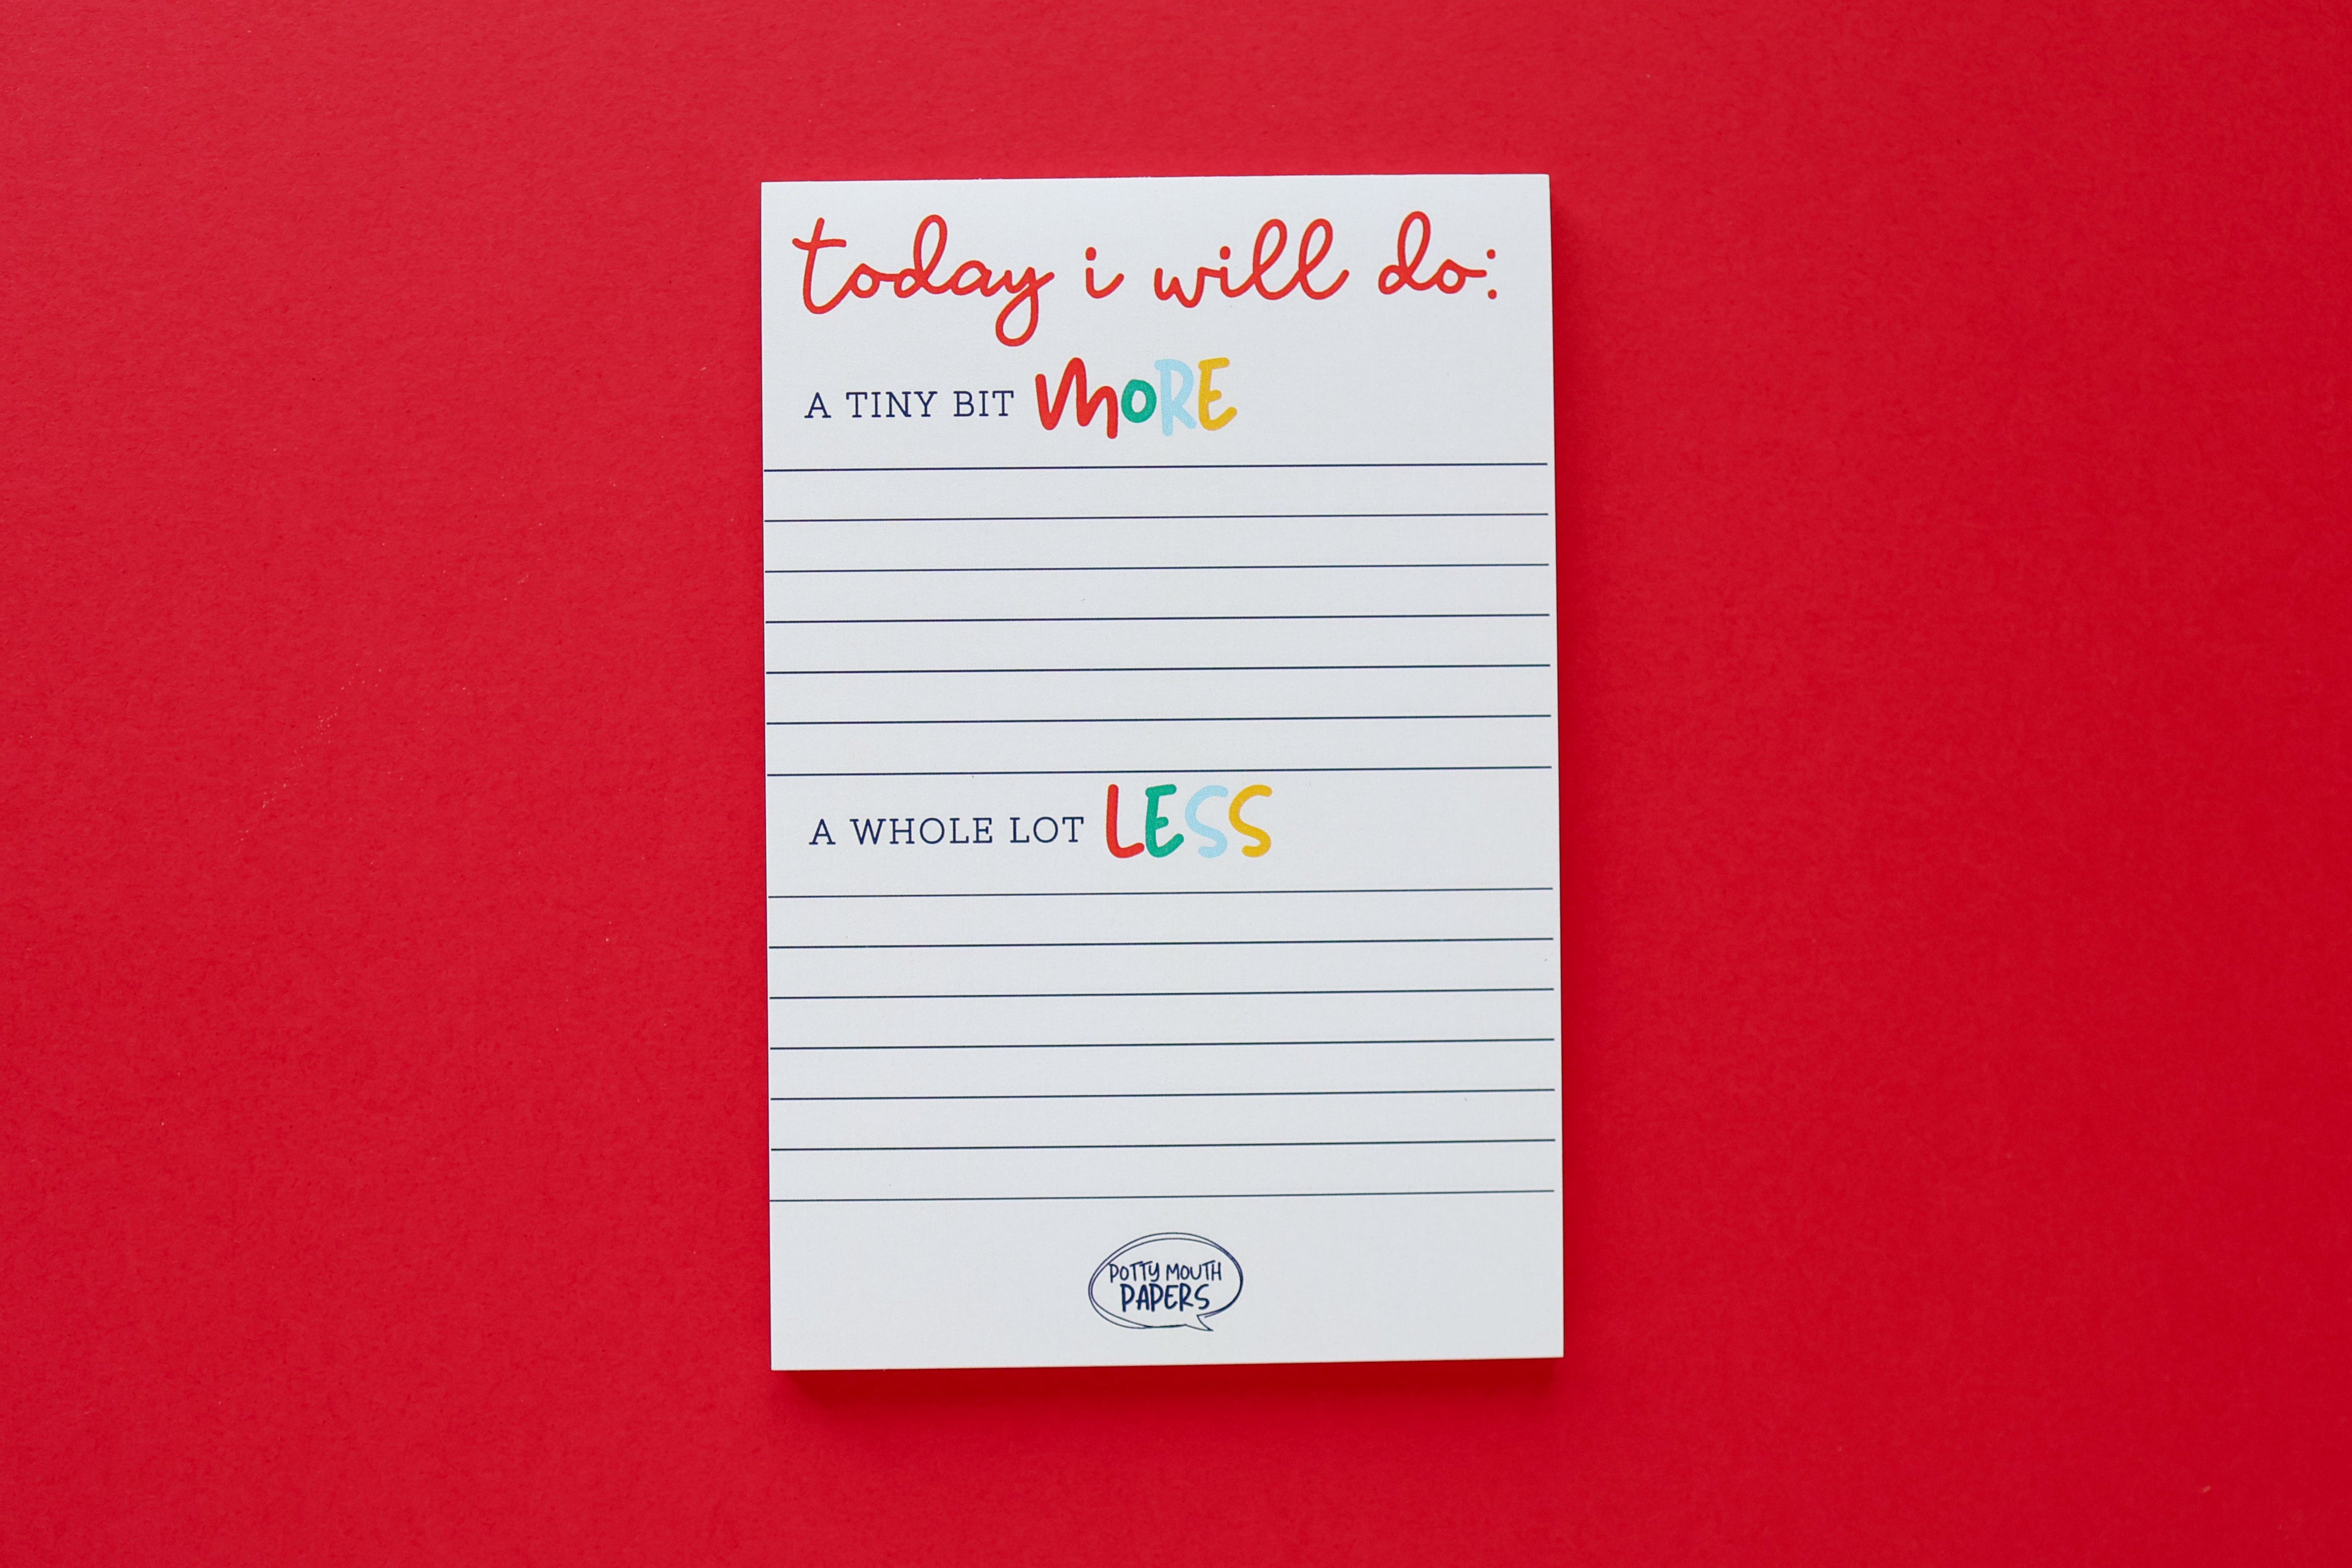 today i will do:
A TINY BIT MORE
A WHOLE LOT LESS
POTTY MOUTH
PAPERS